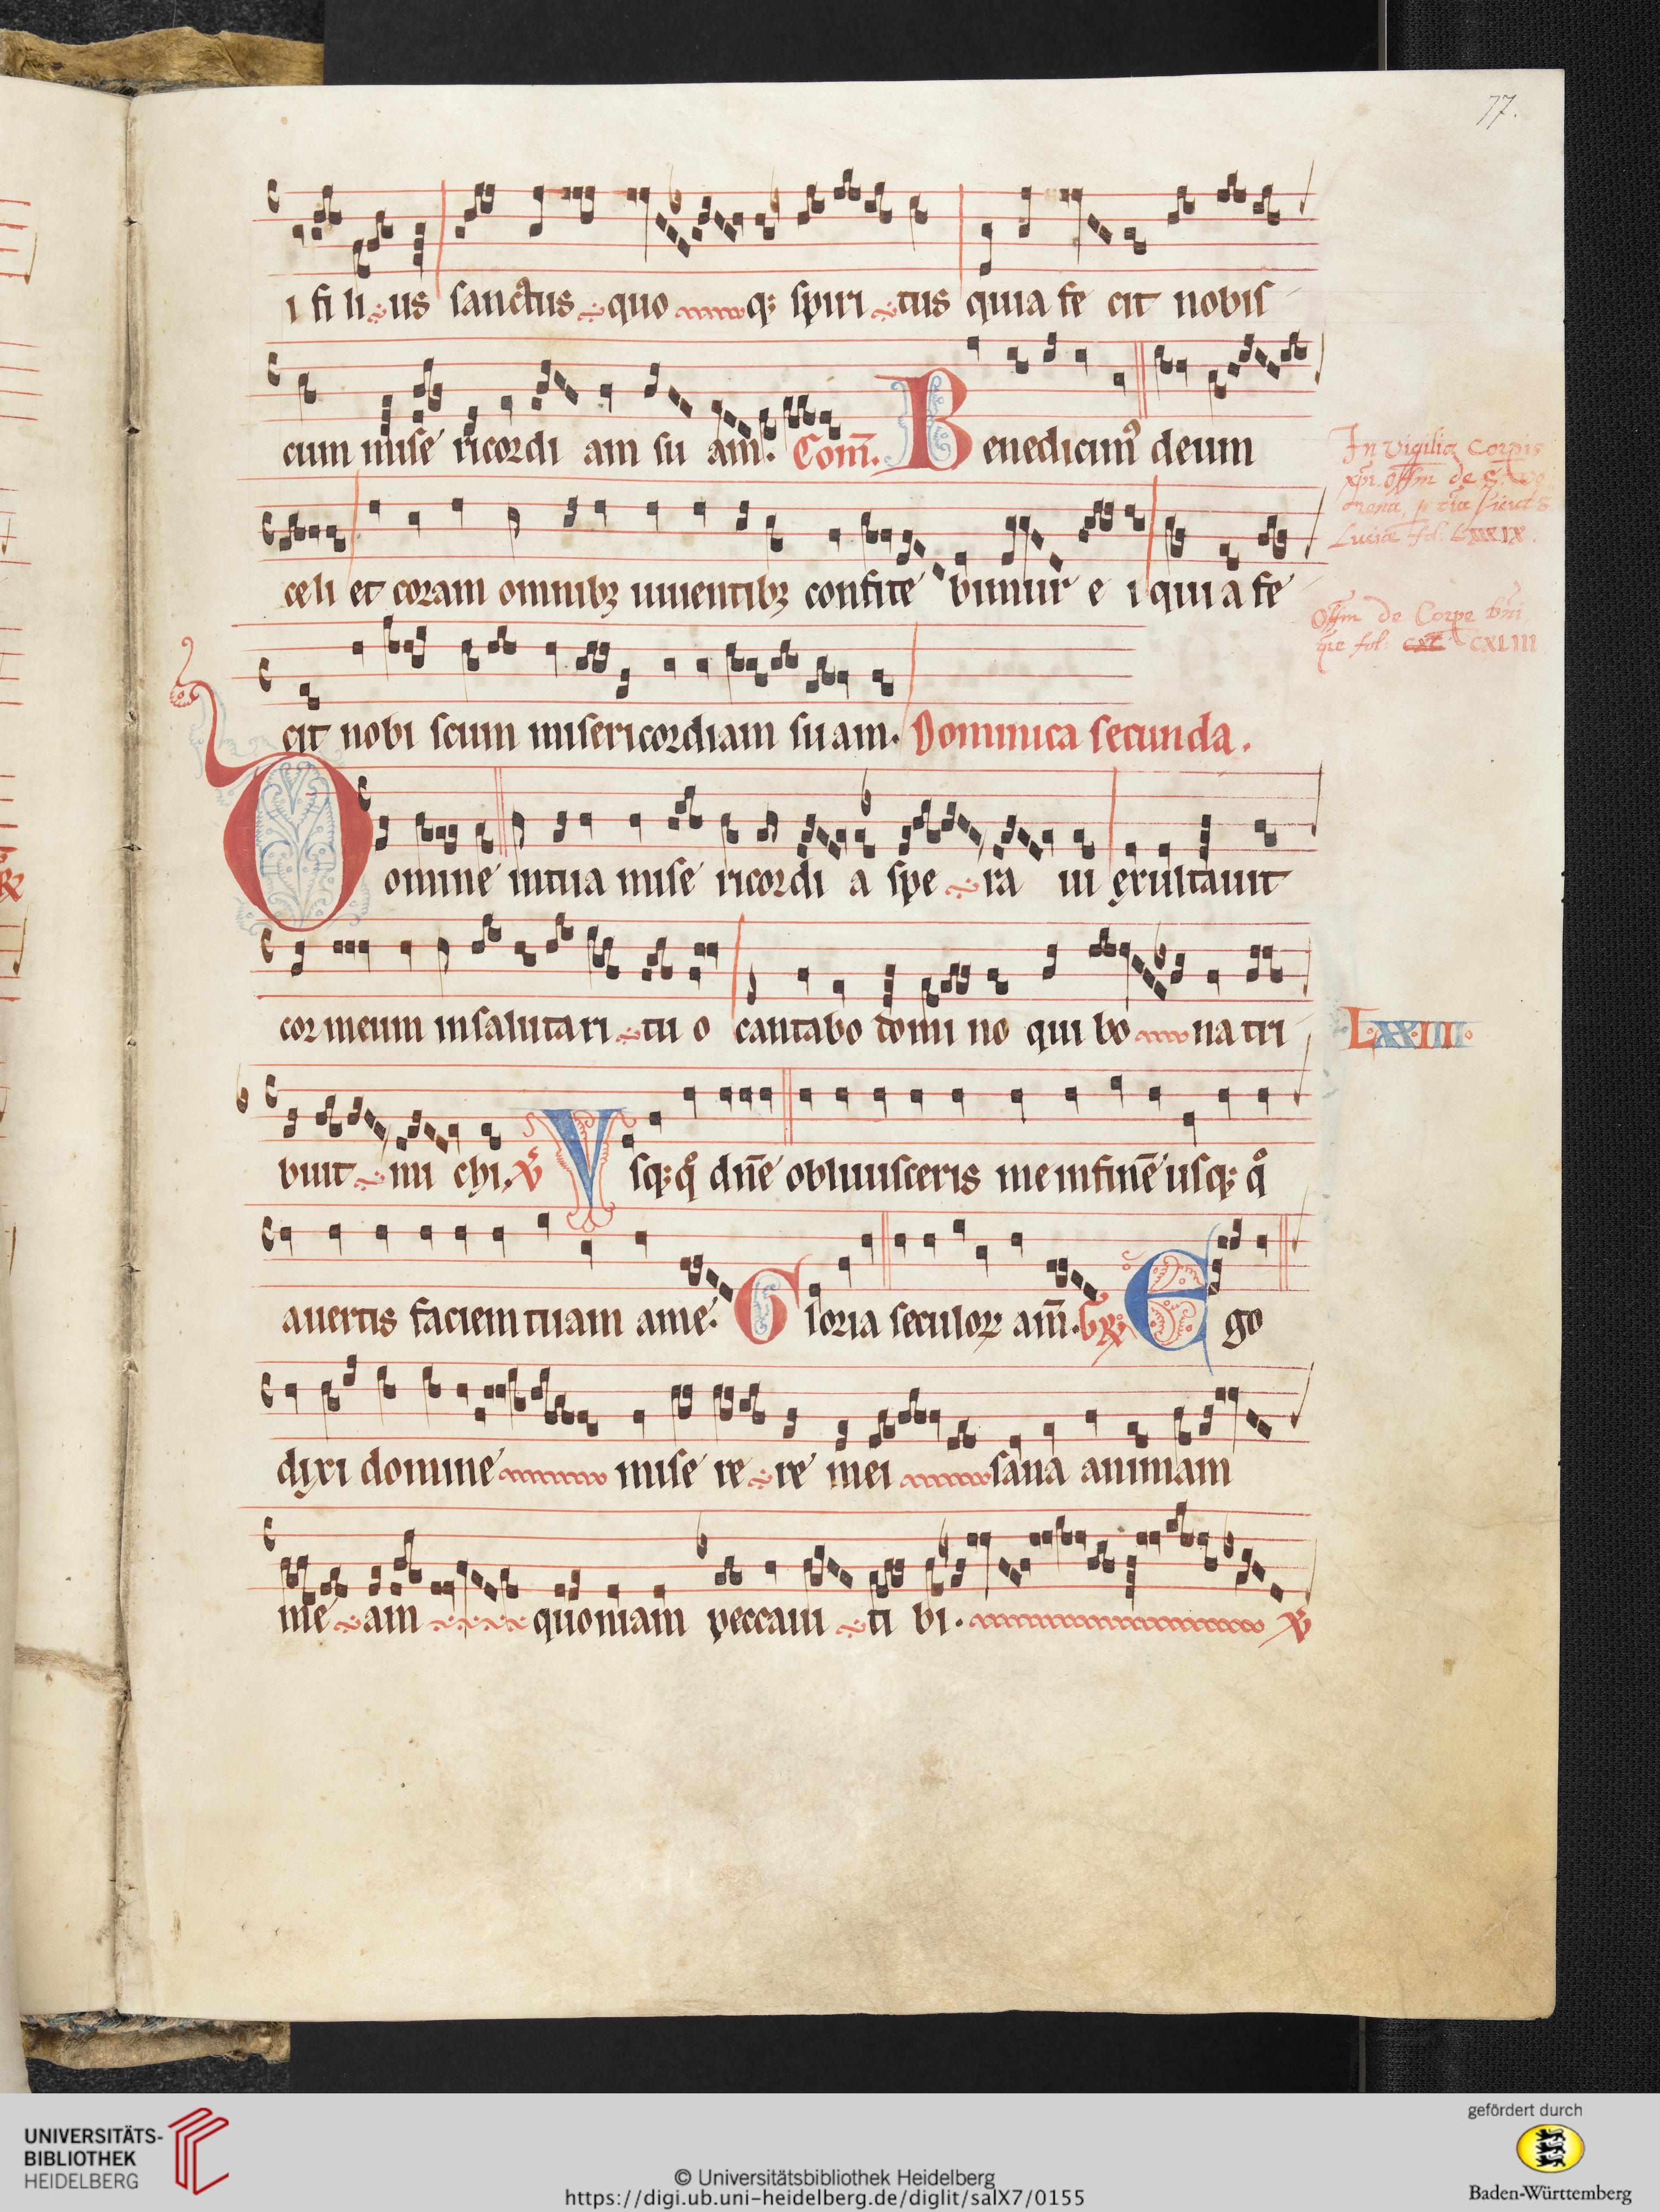 77.
i fi li us sanctus quo q; spiri tus quia fe cit nobis
cum mise ricordi am su am. Com̄. Benedicimꝰ deum
celi et coram omnibꝫ uiuentibꝫ confite bimur e i quia fe
cit nobi scum misericordiam suam. Dominica secunda.
Domine in tua mise ricordi a spe ra ui exultauit
cor meum in salutari tu o cantabo domi no qui bo na tri
buit mi chi. V̄ Vsq; q̊ dn̄e obliuisceris me in finē usq; q̊
auertis faciem tuam a me. Gloria seculoꝝ am̄. G℞ Ego
dixi domine mise re re mei sana animam
me am quoniam peccaui ti bi. V̄
In Vigilia Corpis
xpi. offm de S.
Luciæ fol. LXXXIX.
Offm de Corpe
fol: CXLIII
LXXIIII.
UNIVERSITÄTS-
BIBLIOTHEK
HEIDELBERG
© Universitätsbibliothek Heidelberg
https://digi.ub.uni-heidelberg.de/diglit/salX7/0155
gefördert durch
Baden-Württemberg